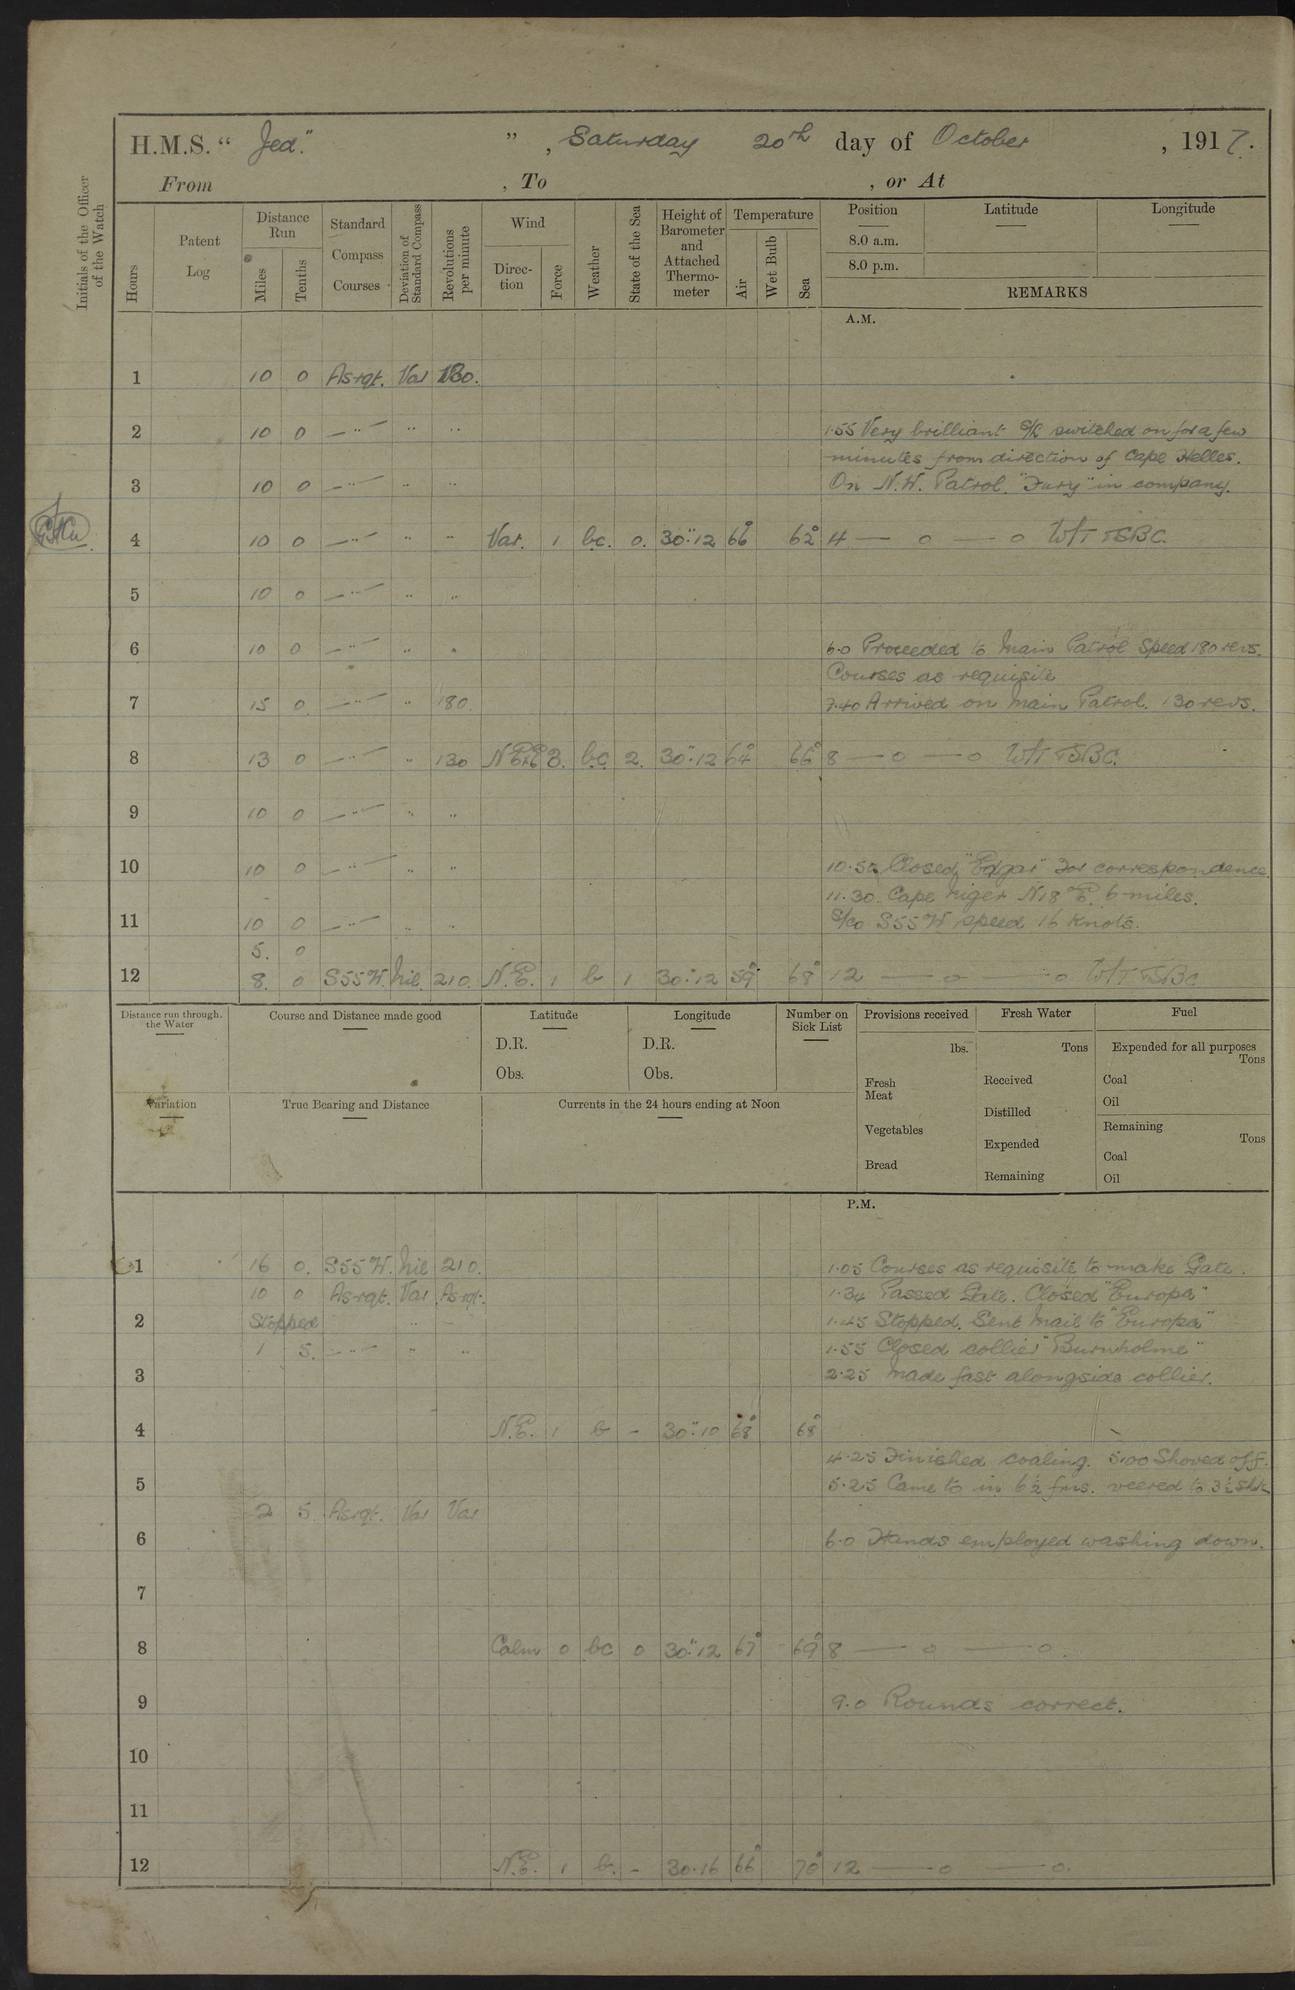 H.M.S. " Jed." " , Saturday 20th day of October , 1917.
From , To , or At
Initials of the Officer of the Watch
Hours
Patent Log
Distance Run
Miles
Tenths
Standard Compass Courses
Deviation of Standard Compass
Revolutions per minute
Wind
Direction
Force
Weather
State of the Sea
Height of Barometer and Attached Thermometer
Temperature
Air
Wet Bulb
Sea
Position Latitude Longitude
8.0 a.m.
8.0 p.m.
REMARKS
A.M.
1 10 0 As rqt. Var 130.
2 10 0 —"— " " 1.55 Very brilliant S/L switched on for a few
minutes from direction of Cape Helles.
3 10 0 —"— " " On N.W. Patrol. "Fury" in company.
4 10 0 —"— " " Var. 1 bc. 0. 30".12 66° 62° 4 — o — o W/T TSBC.
5 10 0 —"— " "
6 10 0 —"— " " 6.0 Proceeded to Main Patrol Speed 180 revs.
Courses as requisite
7 15 0 —"— " 180. 7.40 Arrived on Main Patrol. 130 revs.
8 13 0 —"— " 130 3. bc 2. 30".12 64° 66° 8 — o — o W/T TSBC.
9 10 0 —"— " "
10 10 0 —"— " " Closed "Edgar" for correspondence.
11.30. Cape Niger N18°E. 6 miles.
11 10 0 —"— " " S/Co S55W speed 16 knots.
5. 0
12 8. 0 S55W. Nil. 210. N.E. 1 b 1 30".12 59° 68° 12 — o — o W/T TSBC
Distance run through the Water
Course and Distance made good
Latitude
D.R.
Obs.
Longitude
D.R.
Obs.
Number on Sick List
Provisions received
lbs.
Fresh Meat
Vegetables
Bread
Fresh Water
Tons
Received
Distilled
Expended
Remaining
Fuel
Expended for all purposes
Tons
Coal
Oil
Remaining
Tons
Coal
Oil
Variation
True Bearing and Distance
Currents in the 24 hours ending at Noon
P.M.
1 16 0. S55W. Nil 210. 1.05 Courses as requisite to make Gate.
10 0 As rqt. Var. As rqt. 1.34 Passed Gate. Closed "Europa"
2 Stopped " " 1.45 Stopped. Sent Mail to "Europa"
1 5. —"— " " 1.55 Closed collier "Burnholme"
3 2.25 Made fast alongside collier.
4 N.E. 1 b - 30".10 68° 68°
4.25 Finished coaling. 5.00 Shoved off.
5 5.25 Came to in 6½ fms. veered to 3½ Shk
2 5 As rqt. Var Var
6 6.0 Hands employed washing down.
7
8 Calm 0 bc 0 30".12 67° 69° 8 — o — o.
9 9.0 Rounds correct.
10
11
12 N.E. 1 b. - 30.16 66° 70° 12 — o — o.